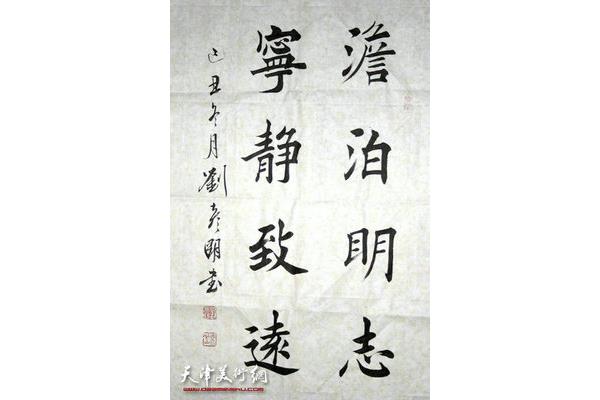 澹泊明志
寧静致遠
己丑冬月劉彦明书
天津美術網